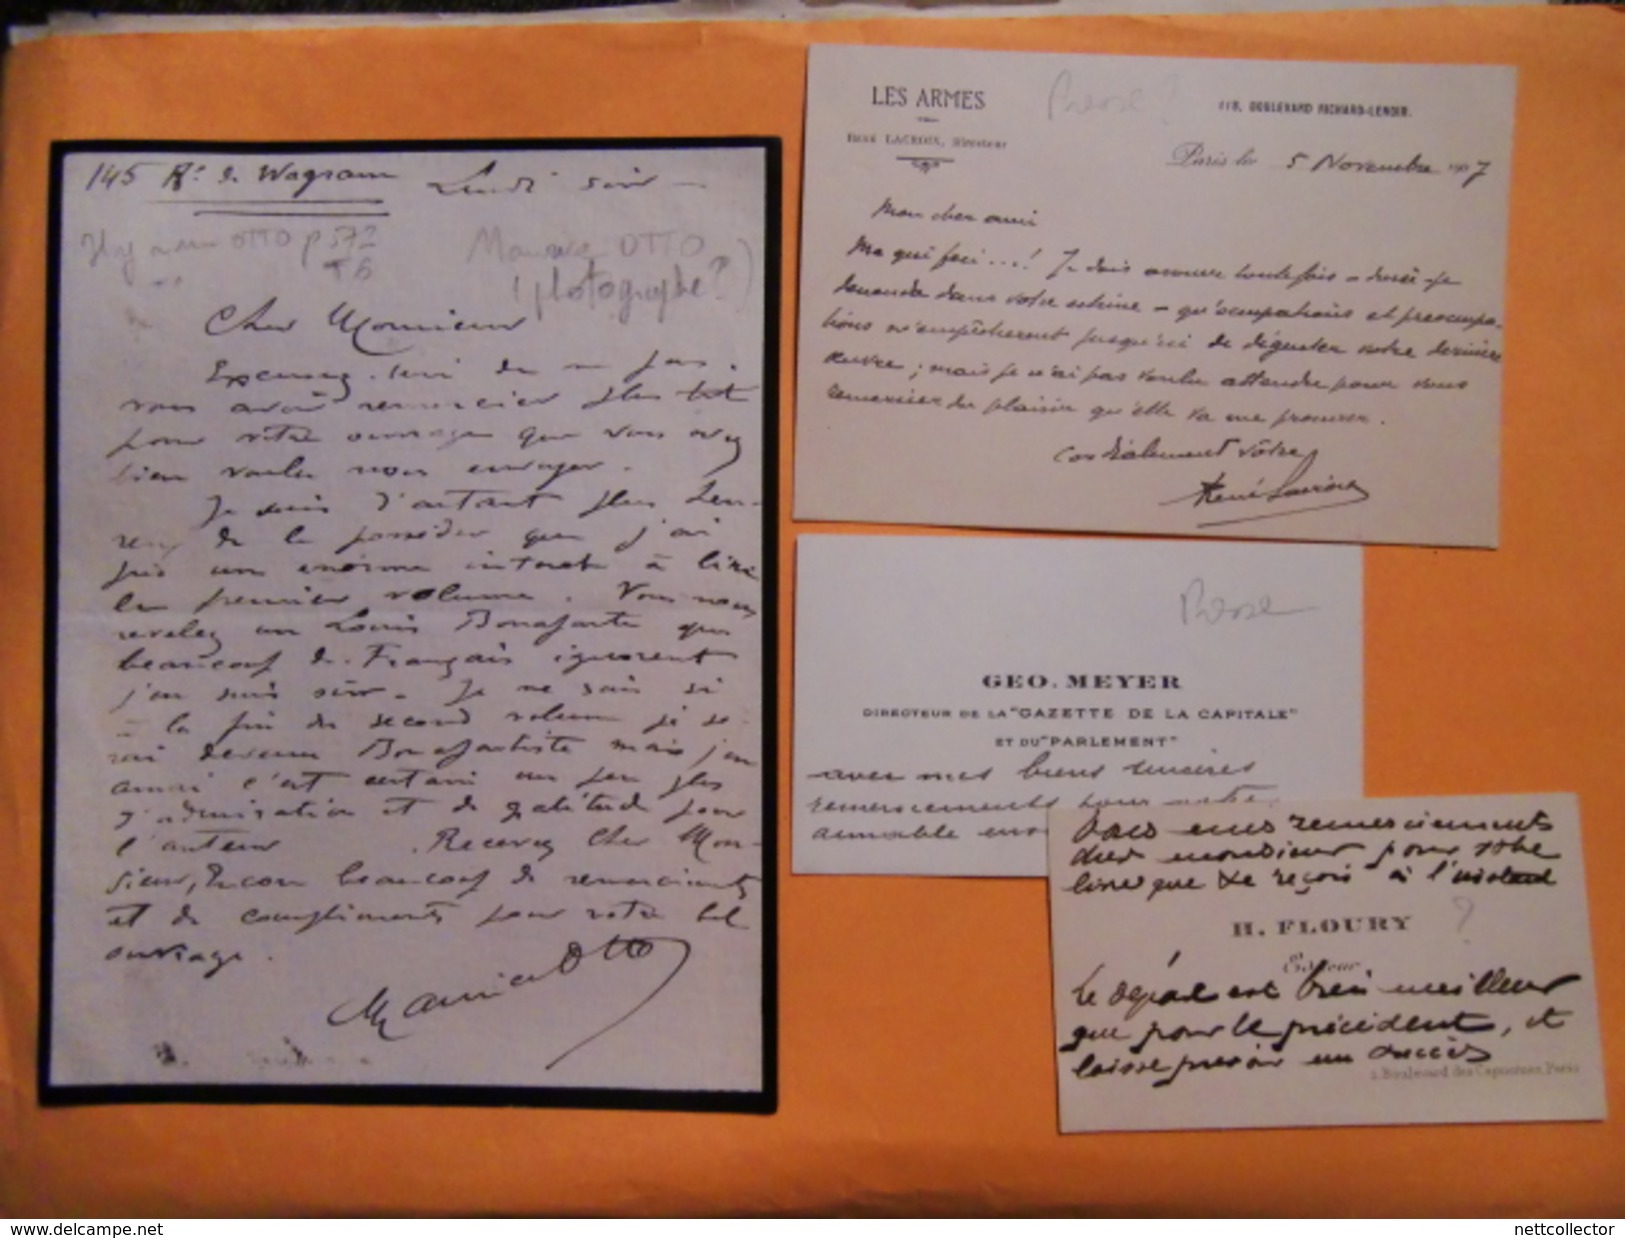 145 Rt. de Wagram Lundi soir
Il y a un OTTO p 572
T 6
Maurice OTTO
(photographe?)
Cher Monsieur
Excusez-moi de ne pas
vous avoir remercier plus tôt
pour votre ouvrage que vous avez
bien voulu nous envoyer.
Je suis d'autant plus heu-
reux de le posséder que j'ai
pris un énorme intérêt à lire
le premier volume. Vous nous
revelez un Louis Bonaparte que
beaucoup de Français ignorent
j'en suis sûr. Je ne sais si
à la fin du second volume je se-
rai devenu Bonapartiste mais j'en
aurai c'est certain un peu plus
d'admiration et de gratitude pour
l'auteur Recevez Cher Mon-
sieur, Encore beaucoup de remerciements
et de compliments pour votre bel
ouvrage.
Maurice Otto
LES ARMES
René LACROIX, Directeur
Presse ?
118, BOULEVARD RICHARD-LENOIR.
Paris le 5 Novembre 1907
Mon cher ami
Me qui feci...! Je dois avouer toutefois - dussé-je
descendre dans votre estime - qu'occupations et préoccupa-
tions m'empêchèrent jusqu'ici de déguster votre dernière
œuvre ; mais je n'ai pas voulu attendre pour vous
remercier du plaisir qu'elle va me procurer.
Cordialement vôtre
René Lacroix
Presse
GEO. MEYER
DIRECTEUR DE LA "GAZETTE DE LA CAPITALE"
ET DU "PARLEMENT"
avec mes biens sincères
remerciements pour votre
aimable
Tous mes remerciements
cher monsieur pour votre
livre que je reçois à l'instant
H. FLOURY
?
Éditeur
Le départ est bien meilleur
que pour le précédent, et
laisse prévoir un succès
1, Boulevard des Capucines, Paris
delcampe.net
nettcollector